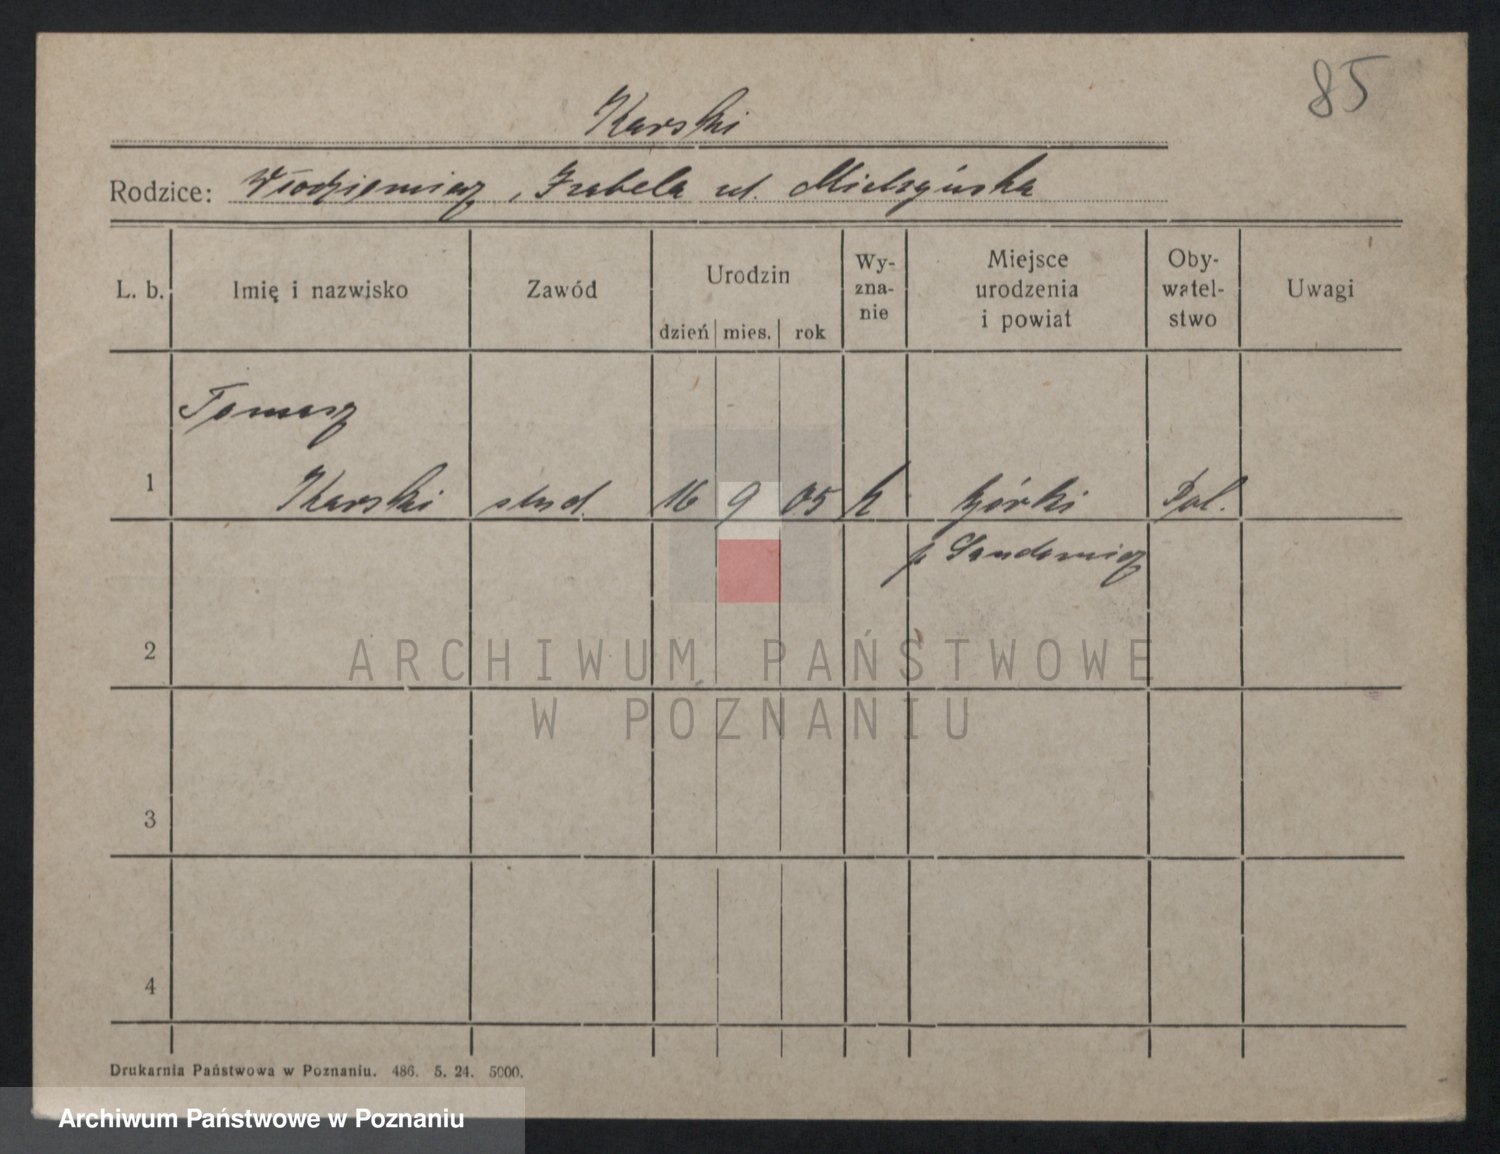 85
Karski
Rodzice: Włodzimierz, Izabela ur. Mielżyńska
L. b. Imię i nazwisko Zawód Urodzin dzień mies. rok Wy-zna-nie Miejsce urodzenia i powiat Oby-watel-stwo Uwagi
Tomasz
1 Karski stud. 16 9 05 k Górki Pol.
p Sandomierz
2
ARCHIWUM PAŃSTWOWE
W POZNANIU
3
4
Drukarnia Państwowa w Poznaniu. 486. 5. 24. 5000.
Archiwum Państwowe w Poznaniu